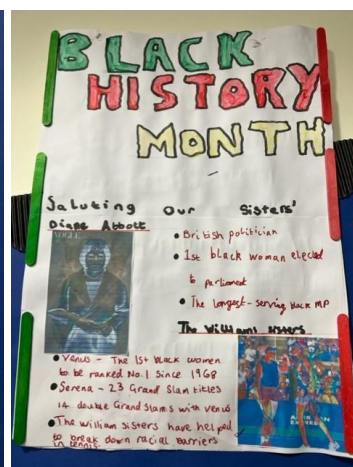 BLACK
HISTORY
MONTH
Saluting Our Sisters'
Diane Abbott
VOGUE
• British politician
• 1st black woman elected
to parliament
• The longest-serving black MP
The Williams sisters
• Venus - The 1st black women
to be ranked No.1 since 1968
• Serena - 23 Grand Slam titles
14 double Grand Slams with venus
• The william sisters have helped
to break down racial barriers
in tennis.